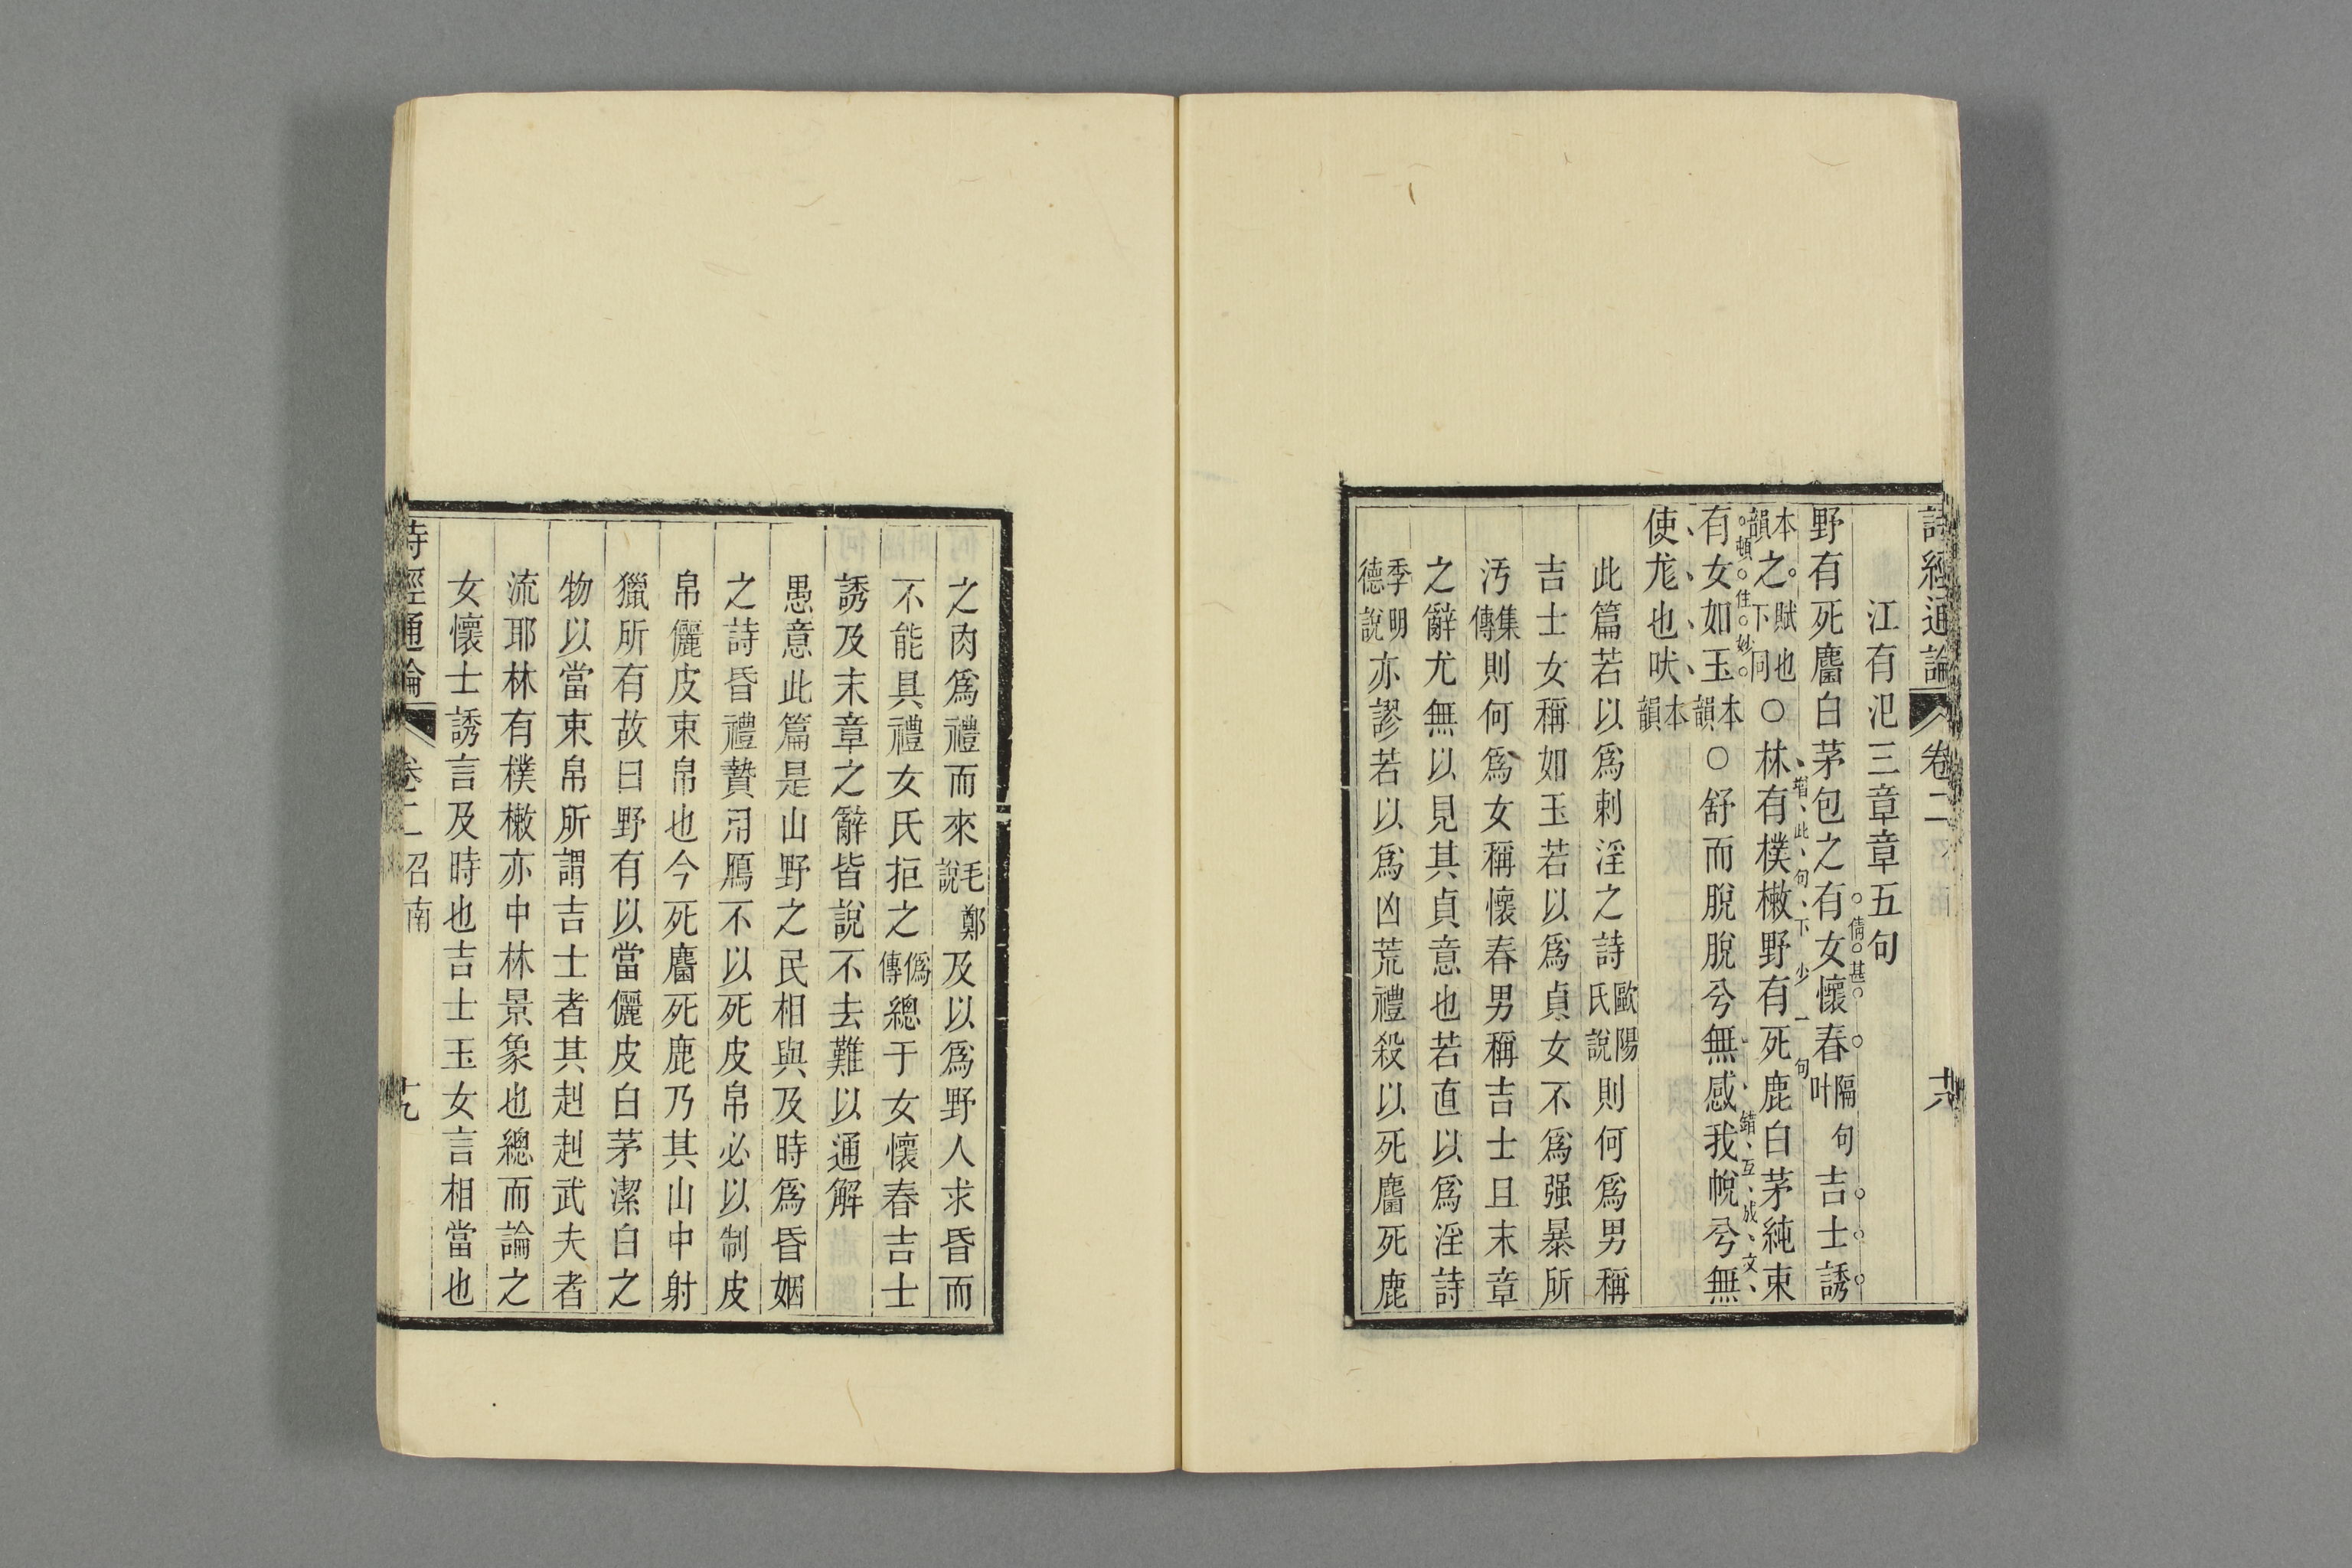 詩經通論 卷二 十八
江有汜三章章五句
野有死麕白茅包之有女懷春隔句叶吉士誘
倩甚
本韻之賦也下同○林有樸樕野有死鹿白茅純束
增此句下少一句
有女如玉本韻○舒而脫脫兮無感我帨兮無
頓住妙 錯互成文
使尨也吠本韻
此篇若以爲刺淫之詩歐陽氏說則何爲男稱
吉士女稱如玉若以爲貞女不爲强暴所
汚集傳則何爲女稱懷春男稱吉士且末章
之辭尤無以見其貞意也若直以爲淫詩
季明德說亦謬若以爲凶荒禮殺以死麕死鹿
之肉爲禮而來毛鄭說及以爲野人求昏而
不能具禮女氏拒之僞傳總于女懷春吉士
誘及末章之辭皆說不去難以通解
愚意此篇是山野之民相與及時爲昏姻
之詩昏禮贄用鴈不以死皮帛必以制皮
帛儷皮束帛也今死麕死鹿乃其山中射
獵所有故曰野有以當儷皮白茅潔白之
物以當束帛所謂吉士者其赳赳武夫者
流耶林有樸樕亦中林景象也總而論之
女懷士誘言及時也吉士玉女言相當也
詩經通論 卷二 召南 十九